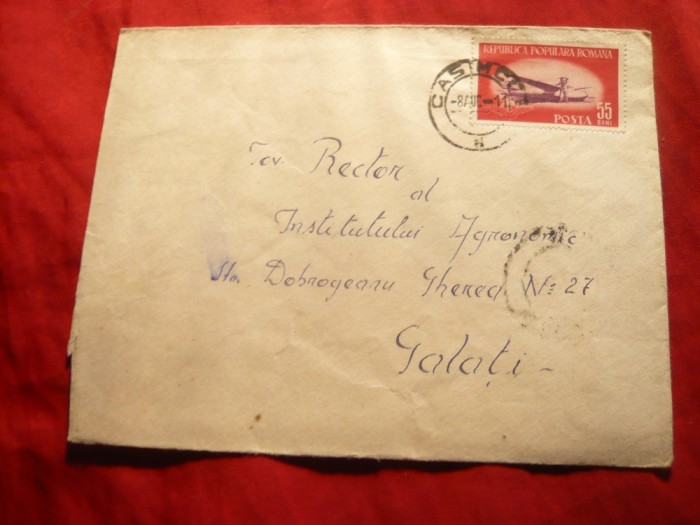 REPUBLICA POPULARA ROMANA
POSTA
55
BANI
CASIMCEA
-8 AUG
Tov. Rector
al
Institutului Agronomic
Str. Dobrogeanu Gherea Nº 27
Galați -